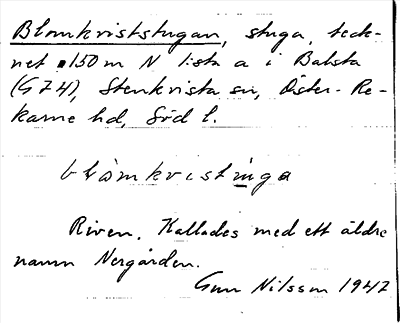 Blomkviststugan, stuga, teck-
net 150 m N 1:sta a i Balsta
(G 74), Stenkvista sn, Öster-Re-
karne hd, Söd l.
blòmkvistinga
Riven. Kallades med ett äldre
namn Norgården.
Gun Nilsson 1947